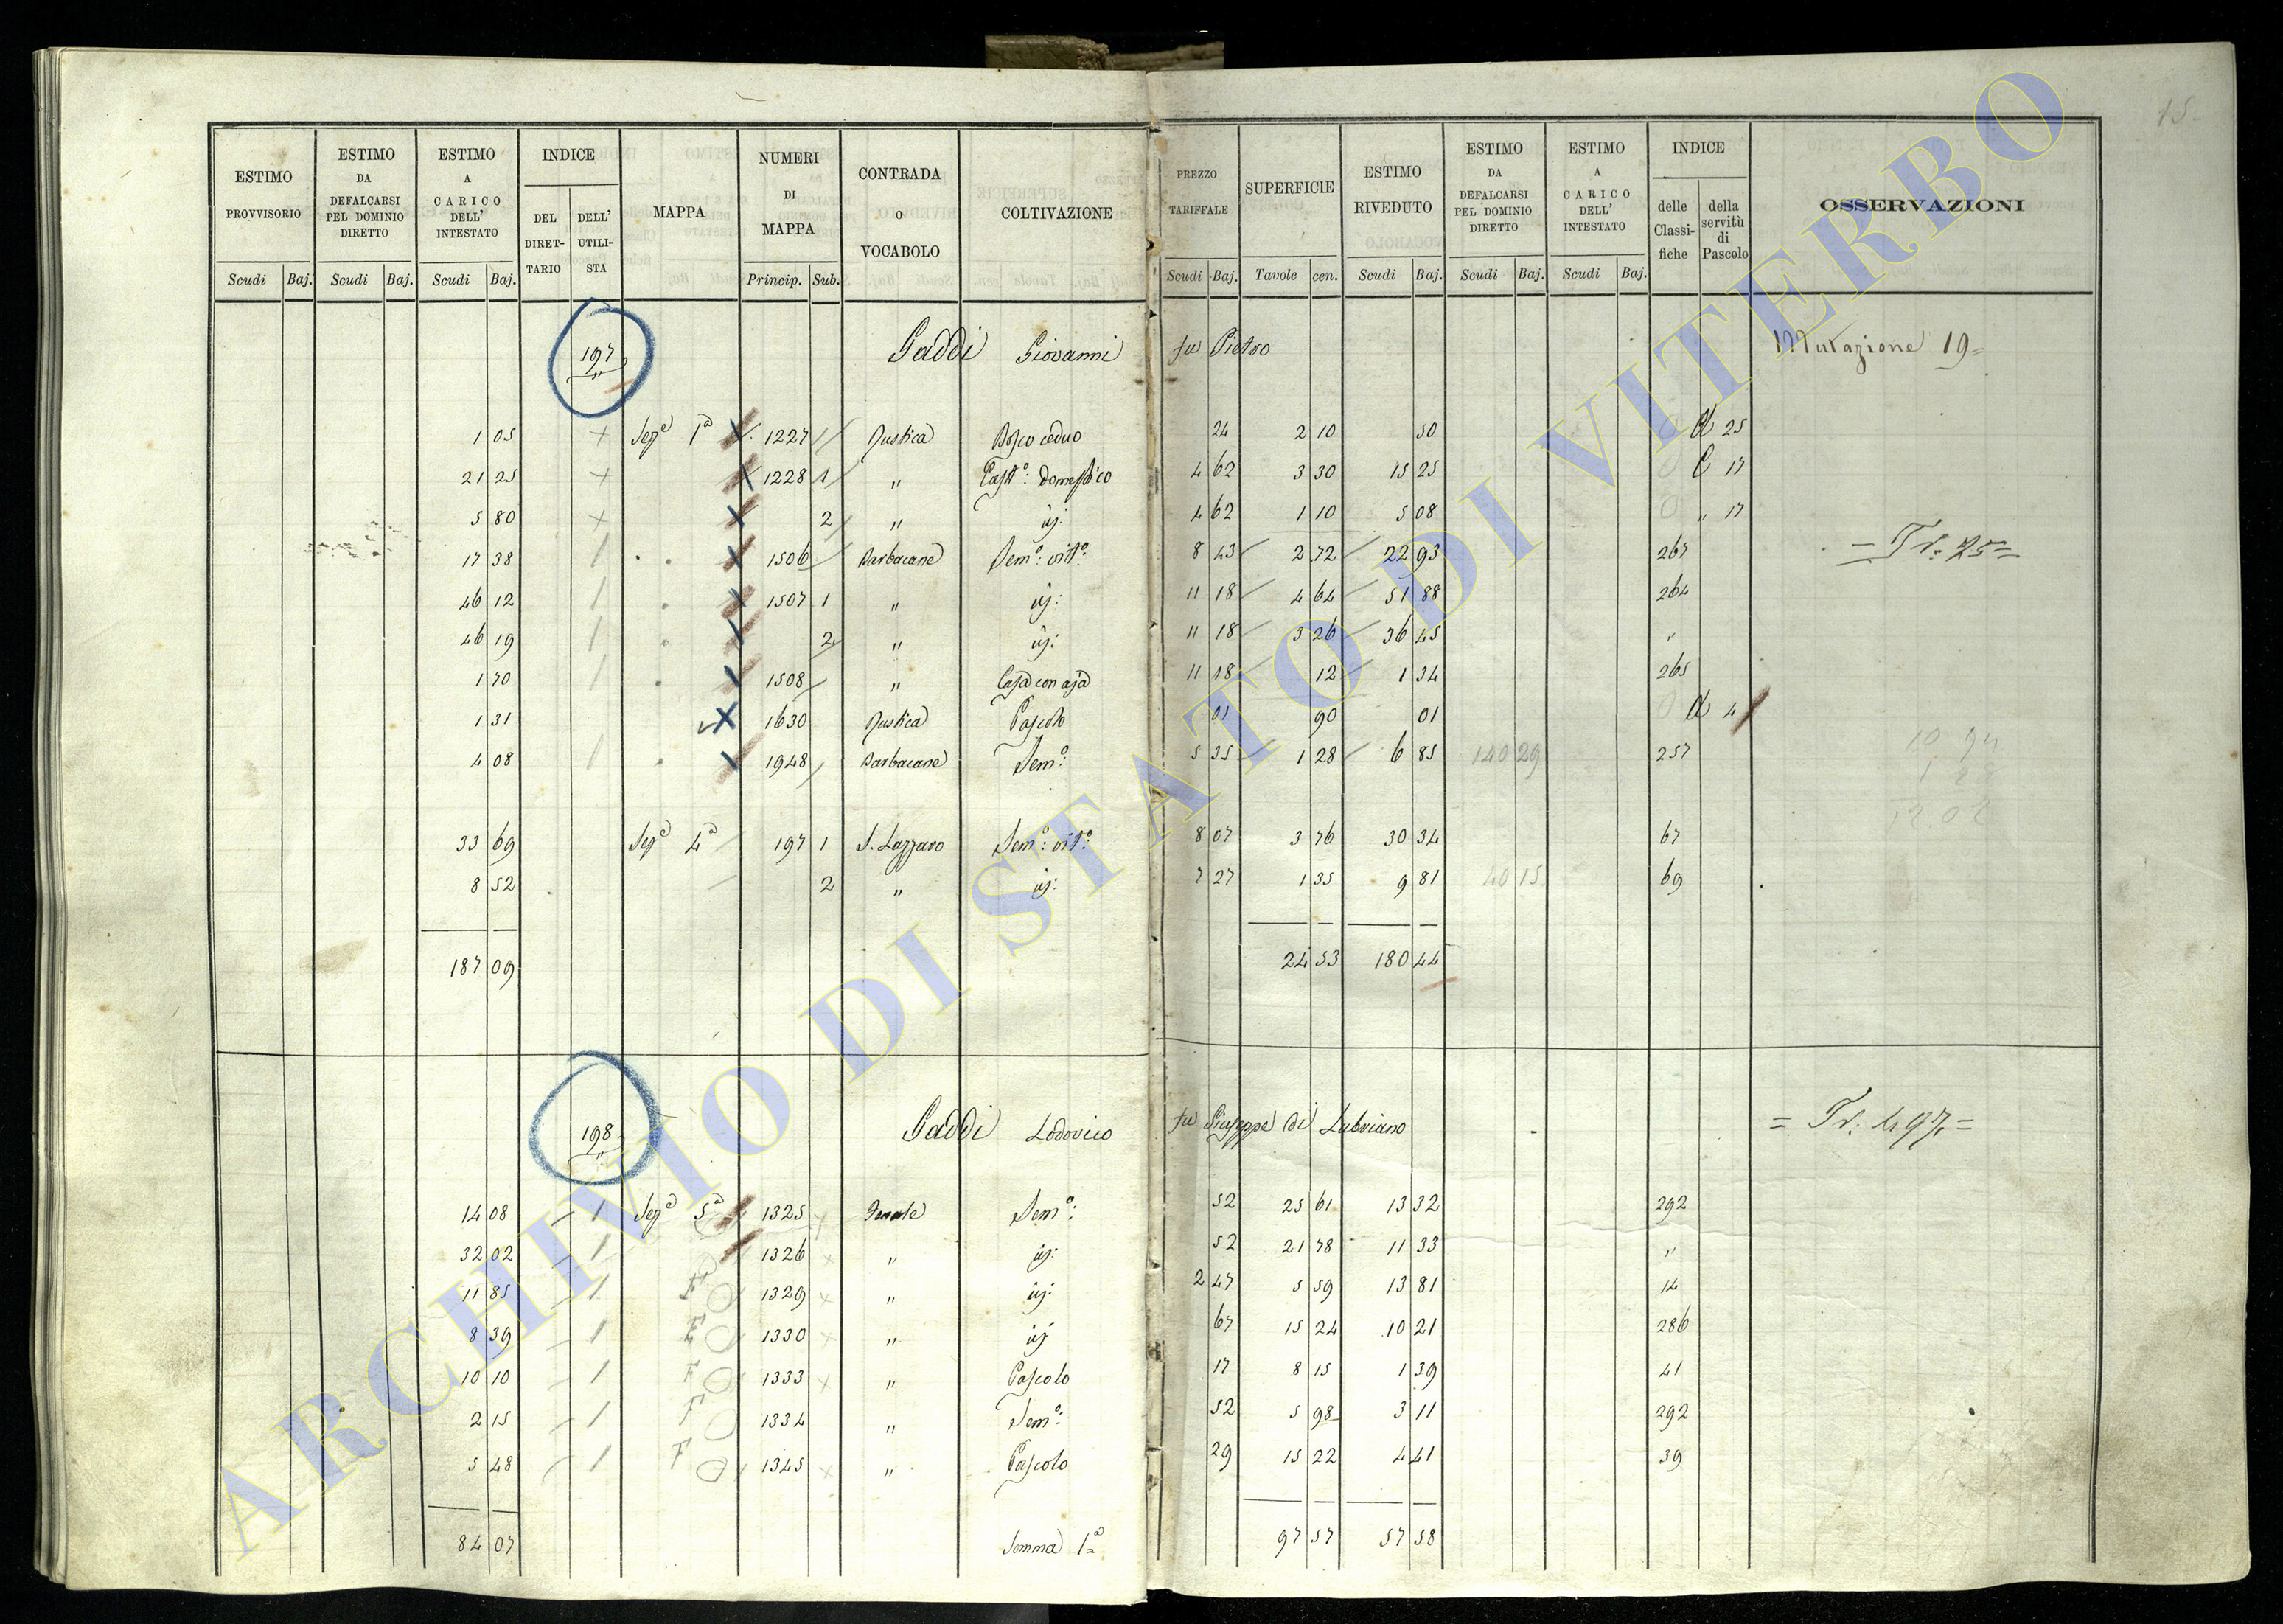 15
ESTIMO PROVVISORIO | ESTIMO DA DEFALCARSI PEL DOMINIO DIRETTO | ESTIMO A CARICO DELL' INTESTATO | INDICE | MAPPA | NUMERI DI MAPPA | CONTRADA o VOCABOLO | COLTIVAZIONE | PREZZO TARIFFALE | SUPERFICIE | ESTIMO RIVEDUTO | ESTIMO DA DEFALCARSI PEL DOMINIO DIRETTO | ESTIMO A CARICO DELL' INTESTATO | INDICE | OSSERVAZIONI
DEL DIRET-TARIO | DELL' UTILI-STA | delle Classi-fiche | della servitù di Pascolo
Scudi | Baj. | Scudi | Baj. | Scudi | Baj. | Princip. | Sub. | Scudi | Baj. | Tavole | cen. | Scudi | Baj. | Scudi | Baj. | Scudi | Baj.
197 Gaddi Giovanni fu Pietro Mutazione 19=
1 05 Sez.e 1a 1227 1 Rustica Bosco ceduo 24 2 10 50 A 25
21 25 1228 1 " Past.o: domestico 4 62 3 30 15 25 C 17
5 80 2 " id: 4 62 1 10 5 08 " 17
17 38 1506 Barbacane Sem.o: vit.o: 8 43 2 72 22 93 267 = Tr: 25=
46 12 1507 1 " id: 11 18 4 64 51 88 264
46 19 2 " id: 11 18 3 26 36 45 "
1 70 1508 " Casa con aja 11 18 12 1 34 265
1 31 1630 Rustica Pascolo 01 90 01 A 4
4 08 1948 Barbacane Sem.o: 5 35 1 28 6 85 140 29 257
33 69 Sez.e 4a 197 1 S. Lazzaro Sem.o: vit.o: 8 07 3 76 30 34 67
8 52 2 " id: 7 27 1 35 9 81 40 15 69
187 09 24 53 180 44
198 Gaddi Lodovico fu Giuseppe di Lubriano = Tr: 497=
14 08 Sez.e 5a 1325 Sem.o: 52 25 61 13 32 292
32 02 1326 " id: 52 21 78 11 33 "
11 85 F 1329 " id: 2 47 5 59 13 81 14
8 39 F 1330 " id 67 15 24 10 21 286
10 10 F 1333 " Pascolo 17 8 15 1 39 41
2 15 F 1334 " Sem.o: 52 5 98 3 11 292
5 48 F 1345 " Pascolo 29 15 22 4 41 39
84 07 Somma 1a 97 57 57 58
ARCHIVIO DI STATO DI VITERBO